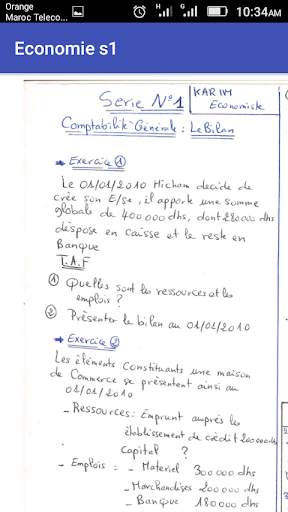 Orange
Maroc Teleco...
10:34AM
Economie s1
Serie N°1
KARIM
Economiste
Comptabilité Générale : Le Bilan
→ Exercice ①
Le 01/01/2010 Hicham decide de
crée son E/se, il apporte une somme
globale de 400 000 dhs, dont 280 000 dhs
dépose en caisse et le reste en
Banque
T.A.F
① Quelles sont les ressources et les
emplois ?
② Présenter le bilan au 01/01/2010
→ Exercice ②
Les éléments constituants une maison
de Commerce se présentent ainsi au
01/01/2010
- Ressources : Emprunt auprès les
établissement de crédit 200 000 dhs
Capital ?
- Emplois : - Materiel 300 000 dhs
- Marchandises 200 000 dhs
- Banque 180 000 dhs